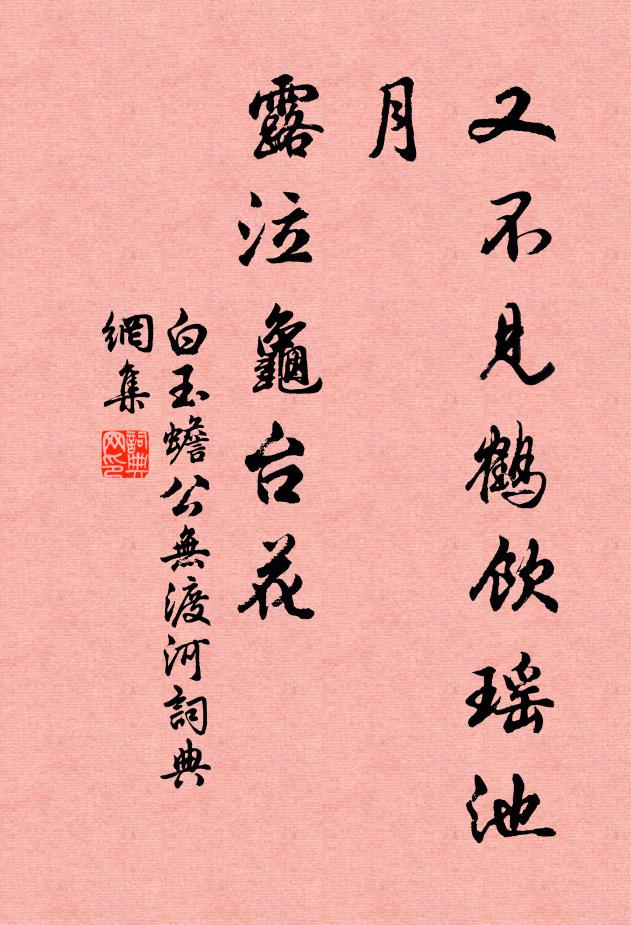 又不見鶴飲瑶池
月
露泣龜台花
白玉蟾公無渡河詞典
網集
詞典
网印